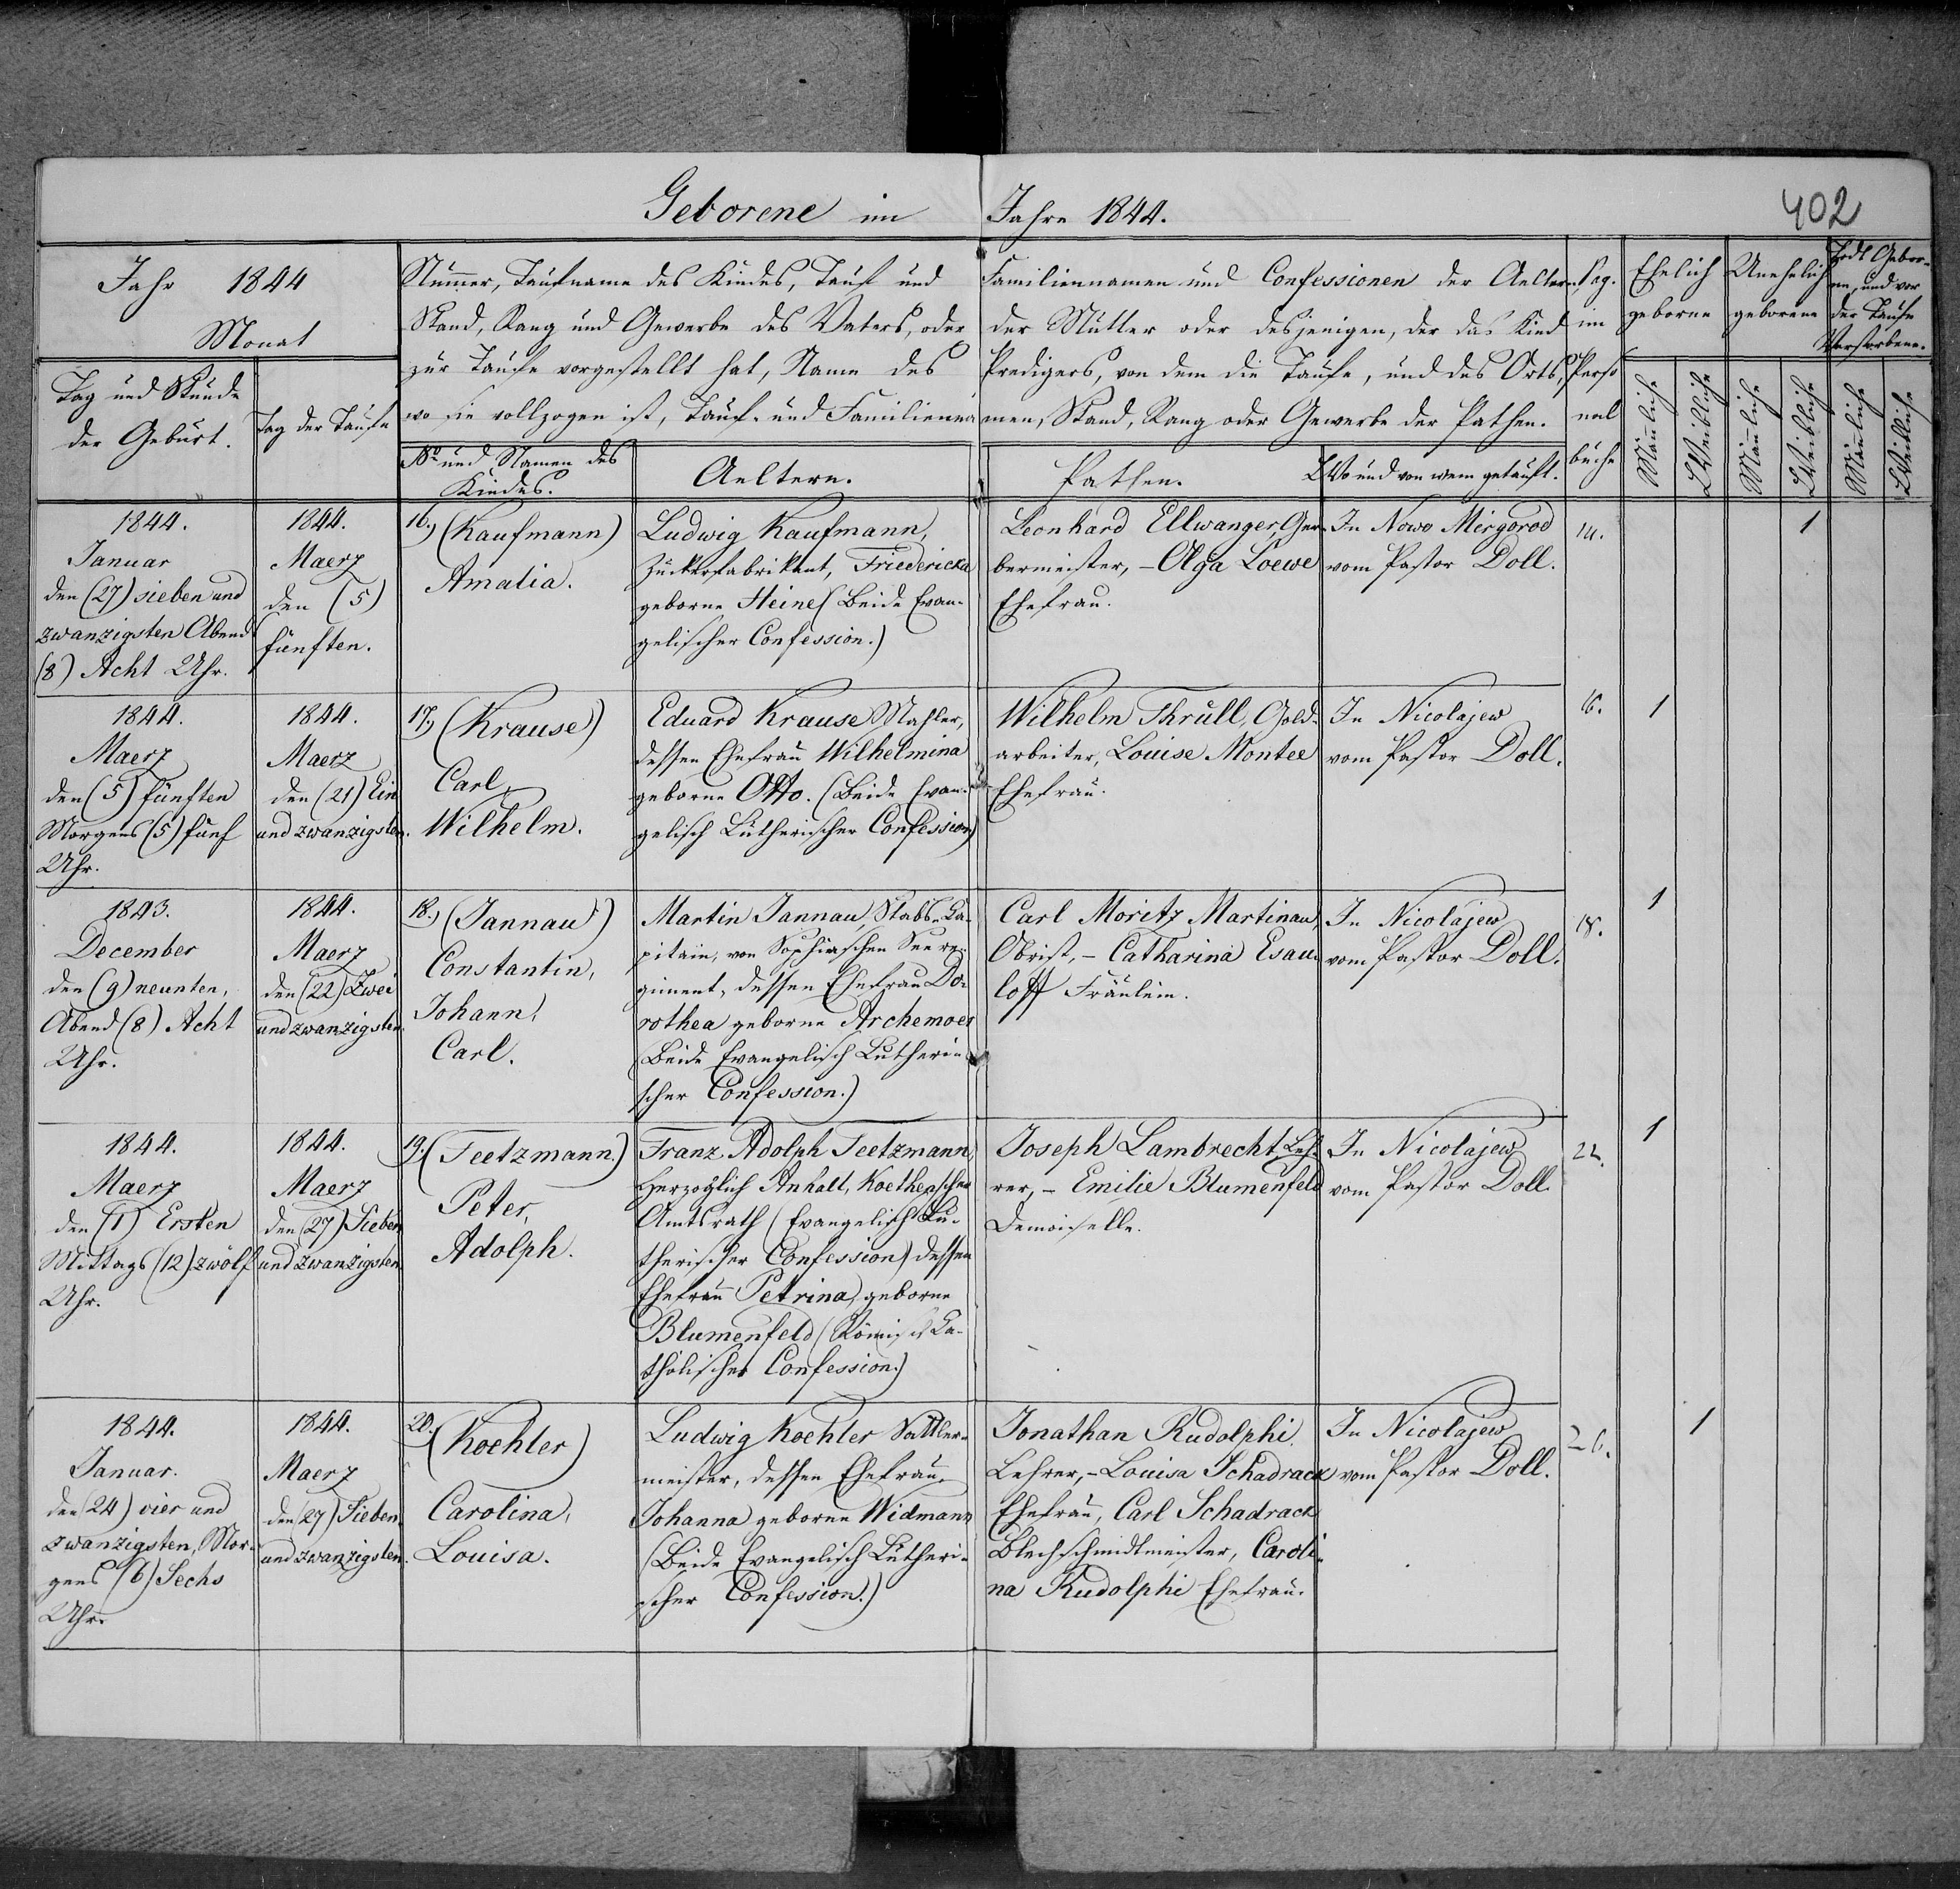 Geborene im Jahre 1844.
402
Jahr 1844
Monat
Tag und Stunde
der Geburt.
Tag der Taufe
Nummer, Taufname des Kindes, Tauf und Familiennamen und Confessionen der Aeltern,
Stand, Rang und Gewerbe des Vaters, oder der Mutter oder desjenigen, der das Kind
zur Taufe vorgestellt hat, Name des Predigers, von dem die Taufe, und des Orts,
wo sie vollzogen ist, Tauf- und Familienna men, Stand, Rang oder Gewerbe der Pathen.
No und Namen des
Kindes.
Aeltern.
Pathen.
Wo und von wem getauft.
Pag.
im
Perso
nal
buche
Ehelich
geborne
Unehelich
geborene
Todt Gebor-
ne, und vor
der Taufe
Verstorbene.
Mänliche
Weibliche
Mänliche
Weibliche
Mänliche
Weibliche
1844.
Januar
den (27) sieben und
zwanzigsten Abend
(8) Acht Uhr.
1844.
Maerz
den (5)
fünften.
16.) (Kaufmann)
Amalia.
Ludwig Kaufmann,
Zuckerfabrikant, Friedericka
geborne Heine (Beide Evan-
gelischer Confession.)
Leonhard Ellwanger, Ger-
bermeister, – Olga Loewe
Ehefrau.
In Nowo Mirgorod
vom Pastor Doll.
14.
1
1844.
Maerz
den (5) fünften
Morgens (5) fünf
Uhr.
1844.
Maerz
den (21) Ein
und zwanzigsten.
17.) (Krause)
Carl,
Wilhelm.
Eduard Krause, Mahler,
dessen Ehefrau Wilhelmina
geborne Otto. (Beide Evan-
gelisch Lutherischer Confession)
Wilhelm Thrull, Gold-
arbeiter, Louise Montee
Ehefrau.
In Nicolajew
vom Pastor Doll.
16.
1
1843.
December
den (9) neunten,
Abend (8) Acht
Uhr.
1844.
Maerz
den (22) Zwei
und zwanzigsten.
18.) (Jannau)
Constantin,
Johann,
Carl.
Martin Jannau, Stabs-Ca-
pitain, von Sophiaschen Seere-
giment, dessen Ehefrau Do-
rothea geborne Archemoes
(Beide Evangelisch Lutheri-
scher Confession.)
Carl Moritz Martinau,
Obrist, – Catharina Esau-
loff Fräulein.
In Nicolajew
vom Pastor Doll.
18.
1
1844.
Maerz
den (1) Ersten
Mittags (12) zwölf
Uhr.
1844.
Maerz
den (27) Sieben
und zwanzigsten
19.) (Teetzmann.)
Peter,
Adolph.
Franz Adolph Teetzmann,
Herzoglich Anhalt, Koethenscher
Amtsrath (Evangelisch Lu-
therischer Confession) dessen
Ehefrau Petrina, geborne
Blumenfeld (Römisch Ka-
tholischer Confession.)
Joseph Lambrecht, Leh-
rer, – Emilie Blumenfeld
Demoiselle.
In Nicolajew
vom Pastor Doll.
22.
1
1844.
Januar.
den (24) vier und
zwanzigsten, Mor-
gens (6) Sechs
Uhr.
1844.
Maerz
den (27) Sieben
und zwanzigsten.
20. (Koehler)
Carolina,
Louisa.
Ludwig Koehler Sattler-
meister, dessen Ehefrau
Johanna geborne Widmann
(Beide Evangelisch Lutheri-
scher Confession.)
Jonathan Rudolphi,
Lehrer, – Louisa Schadrack
Ehefrau, Carl Schadrack
Blechschmidtmeister, Caroli-
na Rudolphi Ehefrau.
In Nicolajew
vom Pastor Doll.
1